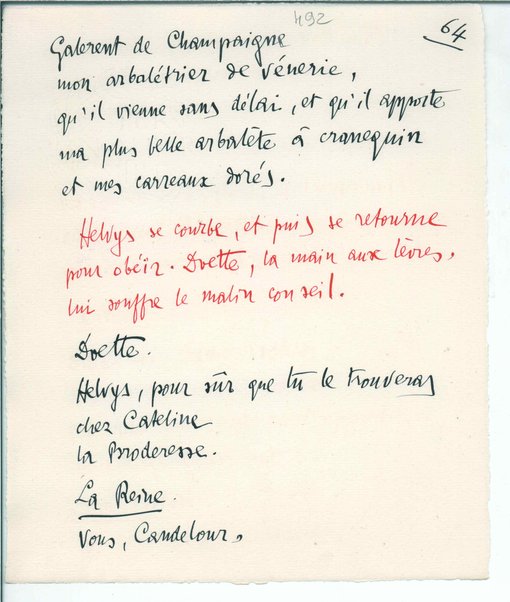 492
64
Galerent de Champaigne
mon arbalétrier de vénerie,
qu'il vienne sans délai, et qu'il apporte
ma plus belle arbalète à cranequin
et mes carreaux dorés.
Helvys se courbe, et puis se retourne
pour obéir. Doette, la main aux lèvres,
lui souffre le malin conseil.
Doette.
Helvys, pour sûr que tu le trouveras
chez Cateline
la Broderesse.
La Reine.
Vous, Candelour,